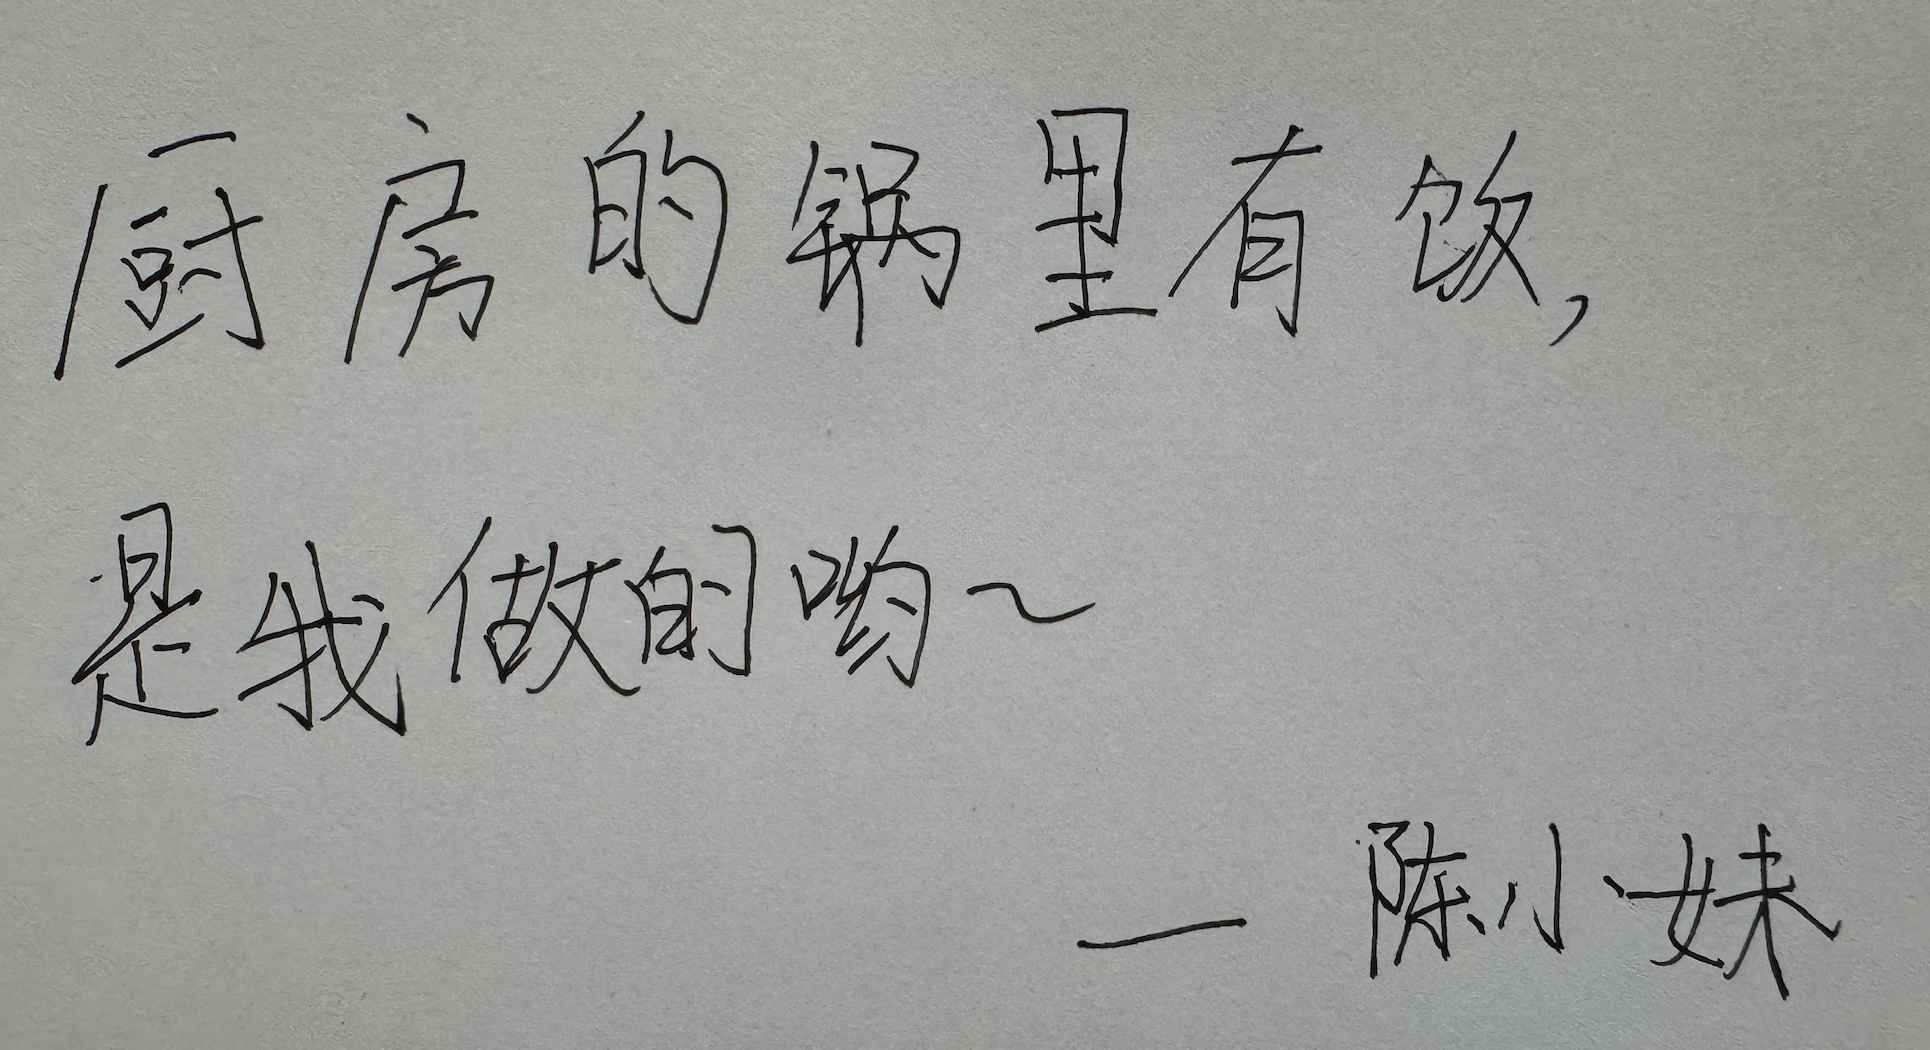 厨房的锅里有饭,
是我做的哟~
— 陈小妹